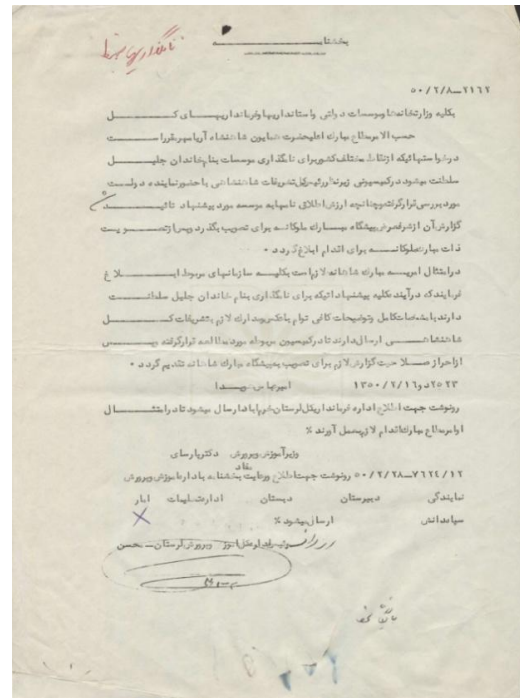 بخشنامه
۲۱۶۲–۵۰/۲/۸
بکلیه وزارتخانه‌ها وموسسات دولتی واستانداریها وفرمانداریهای کل
حسب الامر مطاع مبارک اعلیحضرت همایون شاهنشاه آریامهر مقرر است
درخواستهائیکه از نقاط مختلف کشور برای نامگذاری موسسات بنام خاندان جلیل
سلطنت میشود در کمیسیونی زیر نظر رئیس کل تشریفات شاهنشاهی با حضور نماینده دولت
مورد بررسی قرار گرفته وچنانچه ارزش اطلاق نام به موسسه مورد پیشنهاد تائید شد
گزارش آن از شرفعرض پیشگاه مبارک ملوکانه برای تصویب بگذرد وپس از تصویب
ذات مبارک ملوکانه برای اقدام ابلاغ گردد ۰
در امتثال امریه مبارک شاهانه لازم است بکلیه سازمانهای مربوط ابلاغ
فرمایند که در آینده کلیه پیشنهاداتیکه برای نامگذاری بنام خاندان جلیل سلطنت
دارند با مشخصات کامل وتوضیحات کافی توام با عکس ومدارک لازم بتشریفات کل
شاهنشاهی ارسال دارند تا در کمیسیون مربوطه مورد مطالعه قرار گرفته وپس
از احراز صلاحیت گزارش لازم برای تصویب به پیشگاه مبارک شاهانه تقدیم گردد ۰
۲۰۲۳ در ۱۳۵۰/۲/۱۶ امیرعباس هویدا
رونوشت جهت اطلاع اداره فرمانداریکل لرستان خرم‌آباد ارسال میشود تا در امتثال
اوامر مطاع مبارک اقدام لازم بعمل آورند ٪
وزیر آموزش وپرورش دکتر پارسای
۷۶۲۴/۱۲–۵۰/۲/۲۸ رونوشت جهت اطلاع ورعایت مفاد بخشنامه به اداره آموزش وپرورش
نمایندگی دبیرستان دبستان ادارت تعلیمات انبار
سپاه دانش ارسال میشود ٪
لرستان – محسن